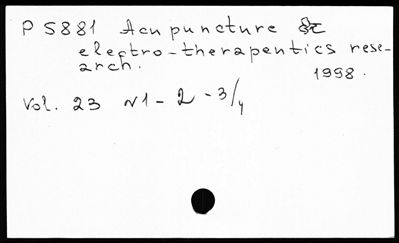 P 5881 Acupuncture &
electro-therapeutics rese-
arch.
1998.
Vol. 23 N1-2-3/4